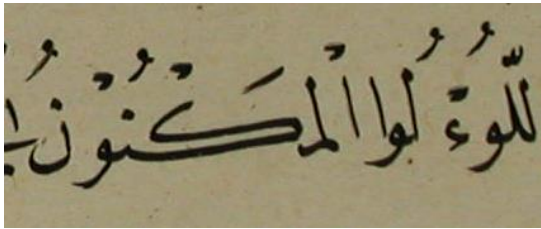 للُّوْءْلُوا الْمَكْنُوْنُ